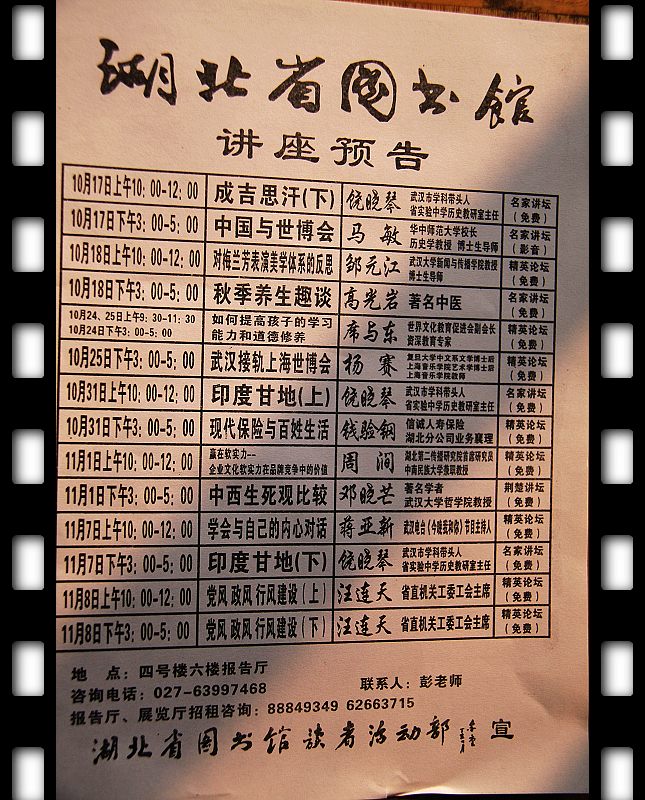 湖北省图书馆
讲座预告
10月17日上午10：00-12：00 成吉思汗(下) 饶晓琴 武汉市学科带头人 省实验中学历史教研室主任 名家讲坛（免费）
10月17日下午3：00-5：00 中国与世博会 马敏 华中师范大学校长 历史学教授 博士生导师 名家讲坛（影音）
10月18日上午10：00-12：00 对梅兰芳表演美学体系的反思 邹元江 武汉大学新闻与传播学院教授 博士生导师 精英论坛（免费）
10月18日下午3：00-5：00 秋季养生趣谈 高光岩 著名中医 名家讲坛（免费）
10月24、25日上午9：30-11：30 10月24日下午3：00-5：00 如何提高孩子的学习能力和道德修养 席与东 世界文化教育促进会副会长 资深教育专家 精英论坛（免费）
10月25日下午3：00-5：00 武汉接轨上海世博会 杨赛 复旦大学中文系文学博士后 上海音乐学院艺术学博士后 上海音乐学院教师 精英论坛（免费）
10月31日上午10：00-12：00 印度甘地(上) 饶晓琴 武汉市学科带头人 省实验中学历史教研室主任 名家讲坛（免费）
10月31日下午3：00-5：00 现代保险与百姓生活 钱验钢 信诚人寿保险 湖北分公司业务襄理 精英论坛（免费）
11月1日上午10：00-12：00 赢在软实力-- 企业文化软实力在品牌竞争中的价值 周涧 湖北第二传播研究院首席研究员 中南民族大学兼职教授 精英论坛（免费）
11月1日下午3：00-5：00 中西生死观比较 邓晓芒 著名学者 武汉大学哲学院教授 荆楚讲坛（免费）
11月7日上午10：00-12：00 学会与自己的内心对话 蒋亚新 武汉电台《今晚我和你》节目主持人 精英论坛（免费）
11月7日下午3：00-5：00 印度甘地(下) 饶晓琴 武汉市学科带头人 省实验中学历史教研室主任 名家讲坛（免费）
11月8日上午10：00-12：00 党风 政风 行风建设（上） 汪连天 省直机关工委工会主席 精英论坛（免费）
11月8日下午3：00-5：00 党风 政风 行风建设（下） 汪连天 省直机关工委工会主席 精英论坛（免费）
地　点：四号楼六楼报告厅
咨询电话：027-63997468　联系人：彭老师
报告厅、展览厅招租咨询：88849349 62663715
湖北省图书馆读者活动部 宣